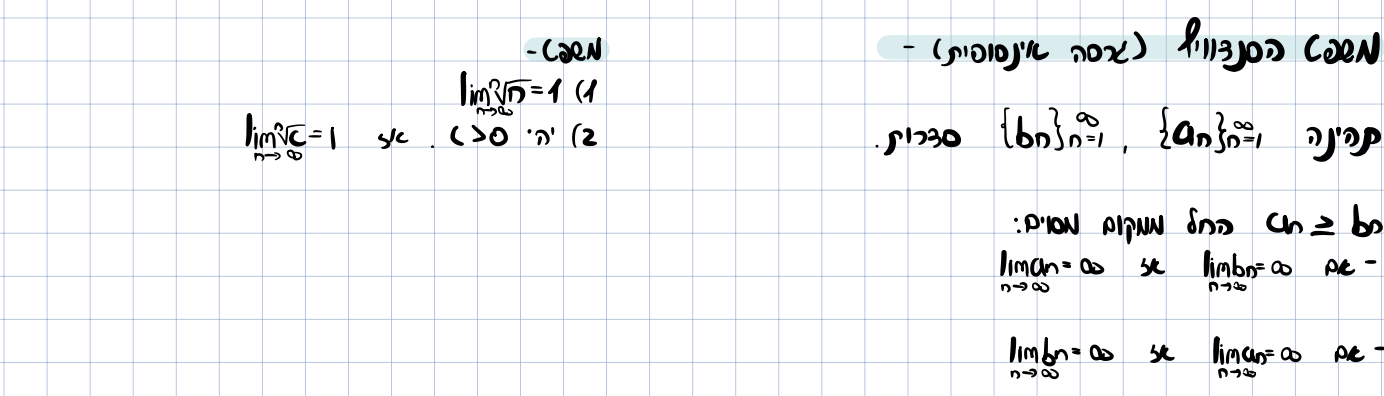 משפט הסנדוויץ' (גרסה אינסופית) -
תהינה {an}_{n=1}^{∞} , {bn}_{n=1}^{∞} סדרות.
an ≥ bn החל ממקום מסוים:
- אם lim_{n→∞} bn = ∞ אז lim_{n→∞} an = ∞
- אם lim_{n→∞} an = ∞ אז lim_{n→∞} bn = ∞
משפט -
1) lim_{n→∞} ⁿ√n = 1
2) יהי c > 0 . אז lim_{n→∞} ⁿ√c = 1